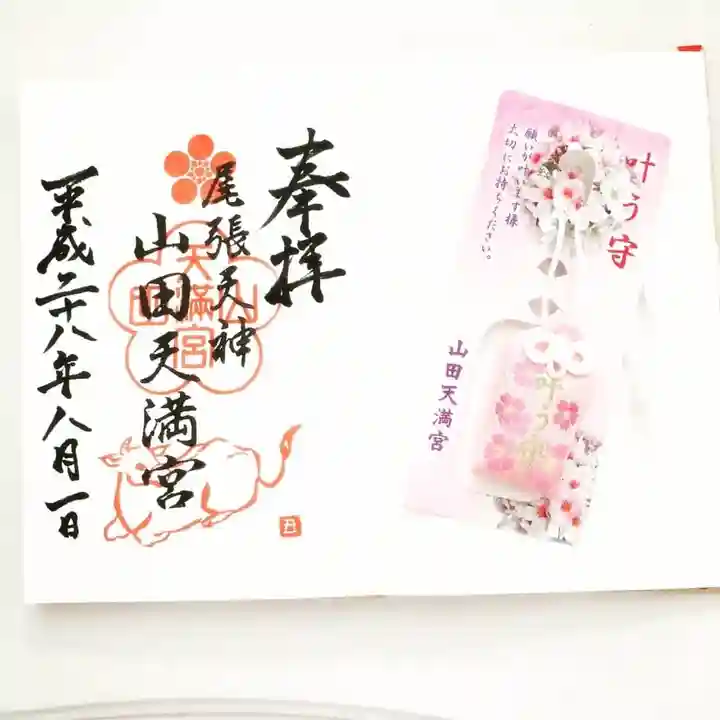 奉拝
尾張天神
山田天満宮
平成二十八年八月一日
山田
天満宮
丑
叶う守
願いが叶います様
大切にお持ちください。
叶う守
山田天満宮